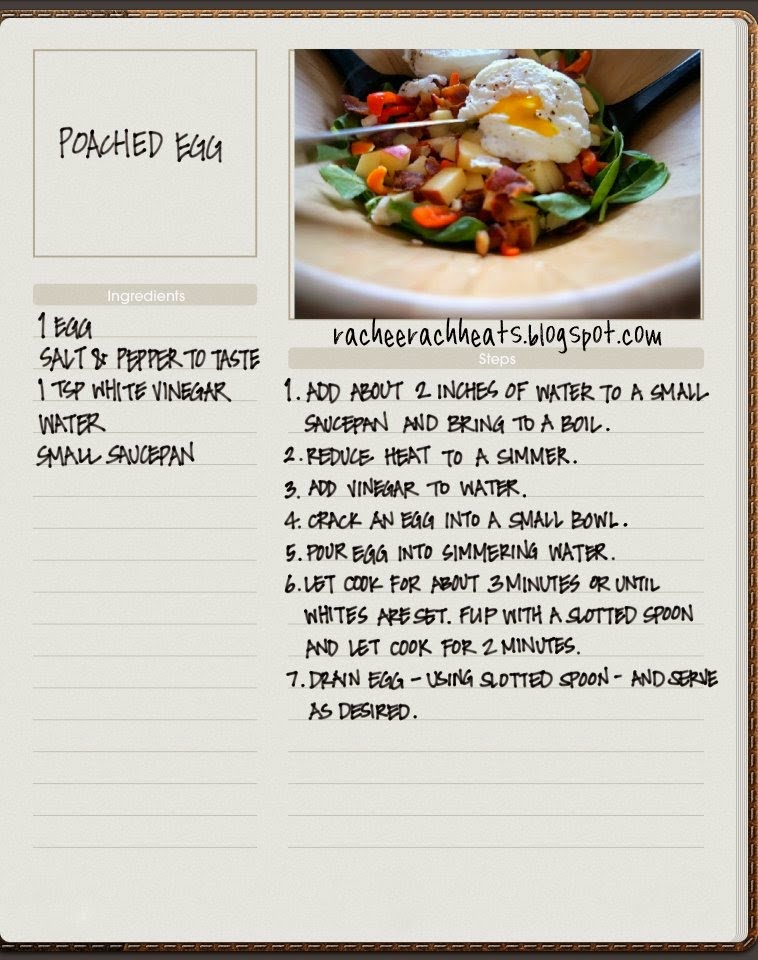 POACHED EGG
Ingredients
1 EGG
SALT & PEPPER TO TASTE
1 TSP WHITE VINEGAR
WATER
SMALL SAUCEPAN
racheerachheats.blogspot.com
Steps
1. ADD ABOUT 2 INCHES OF WATER TO A SMALL
SAUCEPAN AND BRING TO A BOIL.
2. REDUCE HEAT TO A SIMMER.
3. ADD VINEGAR TO WATER.
4. CRACK AN EGG INTO A SMALL BOWL.
5. POUR EGG INTO SIMMERING WATER.
6. LET COOK FOR ABOUT 3 MINUTES OR UNTIL
WHITES ARE SET. FLIP WITH A SLOTTED SPOON
AND LET COOK FOR 2 MINUTES.
7. DRAIN EGG - USING SLOTTED SPOON - AND SERVE
AS DESIRED.